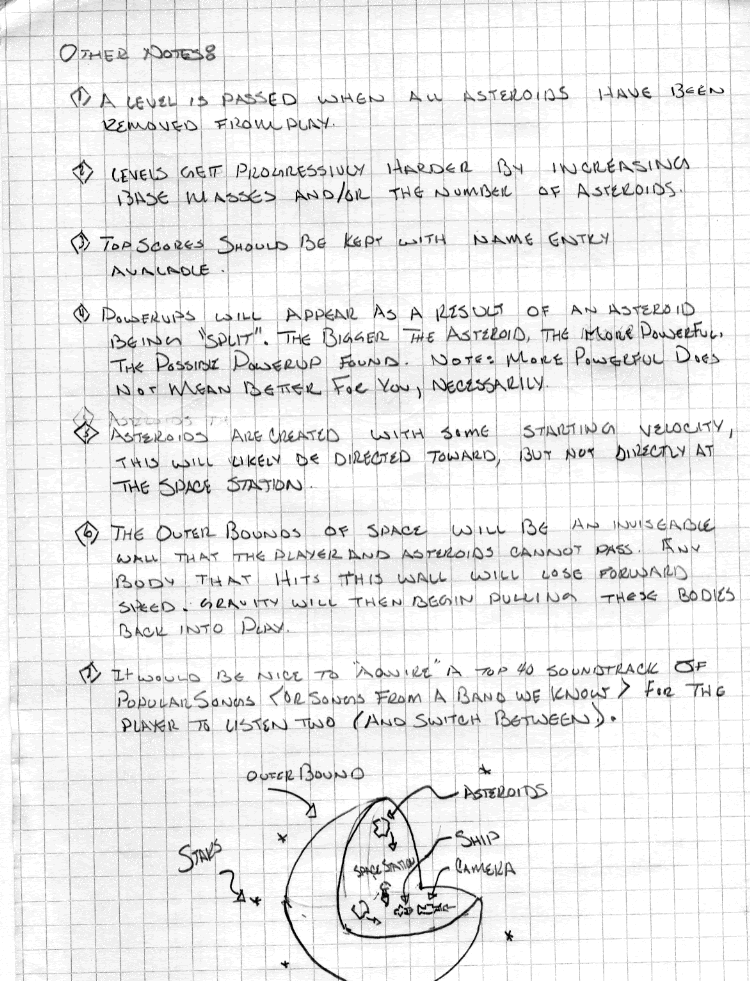 OTHER NOTES:
1 A LEVEL IS PASSED WHEN ALL ASTEROIDS HAVE BEEN
REMOVED FROM PLAY.
2 LEVELS GET PROGRESSIVLY HARDER BY INCREASING
BASE MASSES AND/OR THE NUMBER OF ASTEROIDS.
3 TOP SCORES SHOULD BE KEPT WITH NAME ENTRY
AVAILABLE.
4 POWERUPS WILL APPEAR AS A RESULT OF AN ASTEROID
BEING "SPLIT". THE BIGGER THE ASTEROID, THE MORE POWERFUL
THE POSSIBLE POWERUP FOUND. NOTE: MORE POWERFUL DOES
NOT MEAN BETTER FOR YOU, NECESSARILY.
5 ASTEROIDS TH
5 ASTEROIDS ARE CREATED WITH SOME STARTING VELOCITY,
THIS WILL LIKELY BE DIRECTED TOWARD, BUT NOT DIRECTLY AT
THE SPACE STATION.
6 THE OUTER BOUNDS OF SPACE WILL BE AN INVISEABLE
WALL THAT THE PLAYER AND ASTEROIDS CANNOT PASS. ANY
BODY THAT HITS THIS WALL WILL LOSE FORWARD
SPEED. GRAVITY WILL THEN BEGIN PULLING THESE BODIES
BACK INTO PLAY.
7 IT WOULD BE NICE TO "AQUIRE" A TOP 40 SOUNDTRACK OF
POPULAR SONGS (OR SONGS FROM A BAND WE KNOW) FOR THE
PLAYER TO LISTEN TWO (AND SWITCH BETWEEN).
OUTER BOUND
ASTEROIDS
SHIP
STARS
SPACE STATION
CAMERA